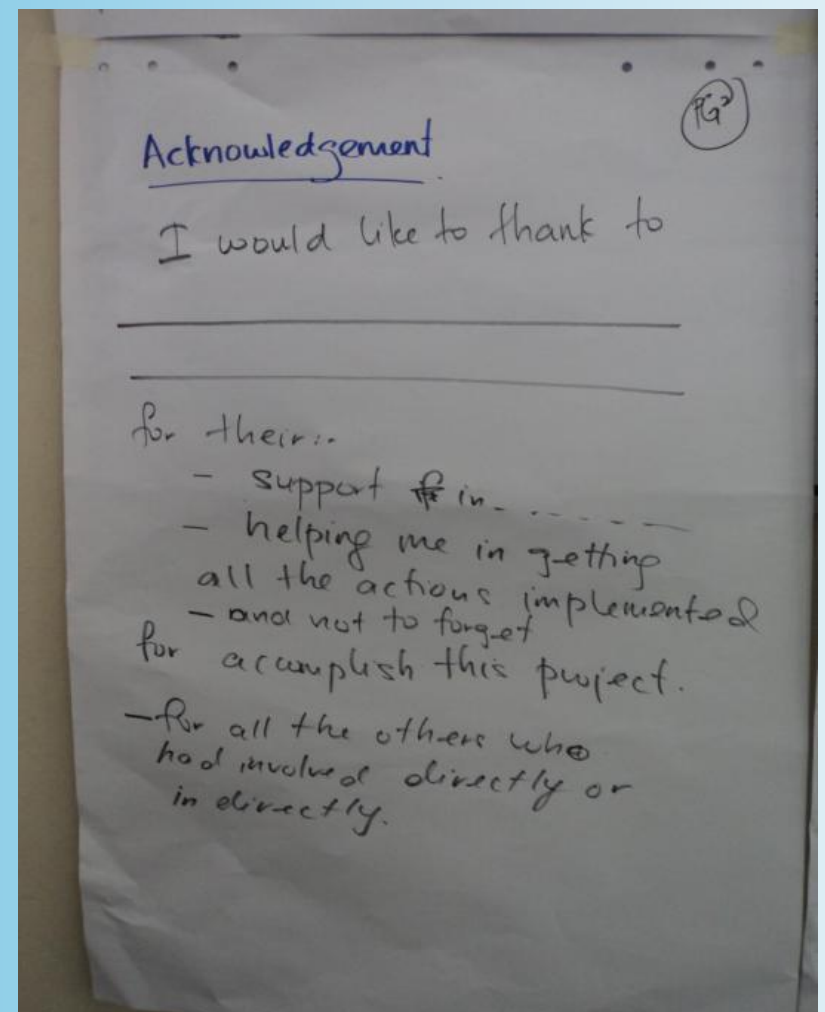 PG2
Acknowledgement
I would like to thank to
for their:-
- support in - - - - - -
- helping me in getting
all the actions implemented
- and not to forget
for accomplish this project.
- for all the others who
had involved directly or
in directly.